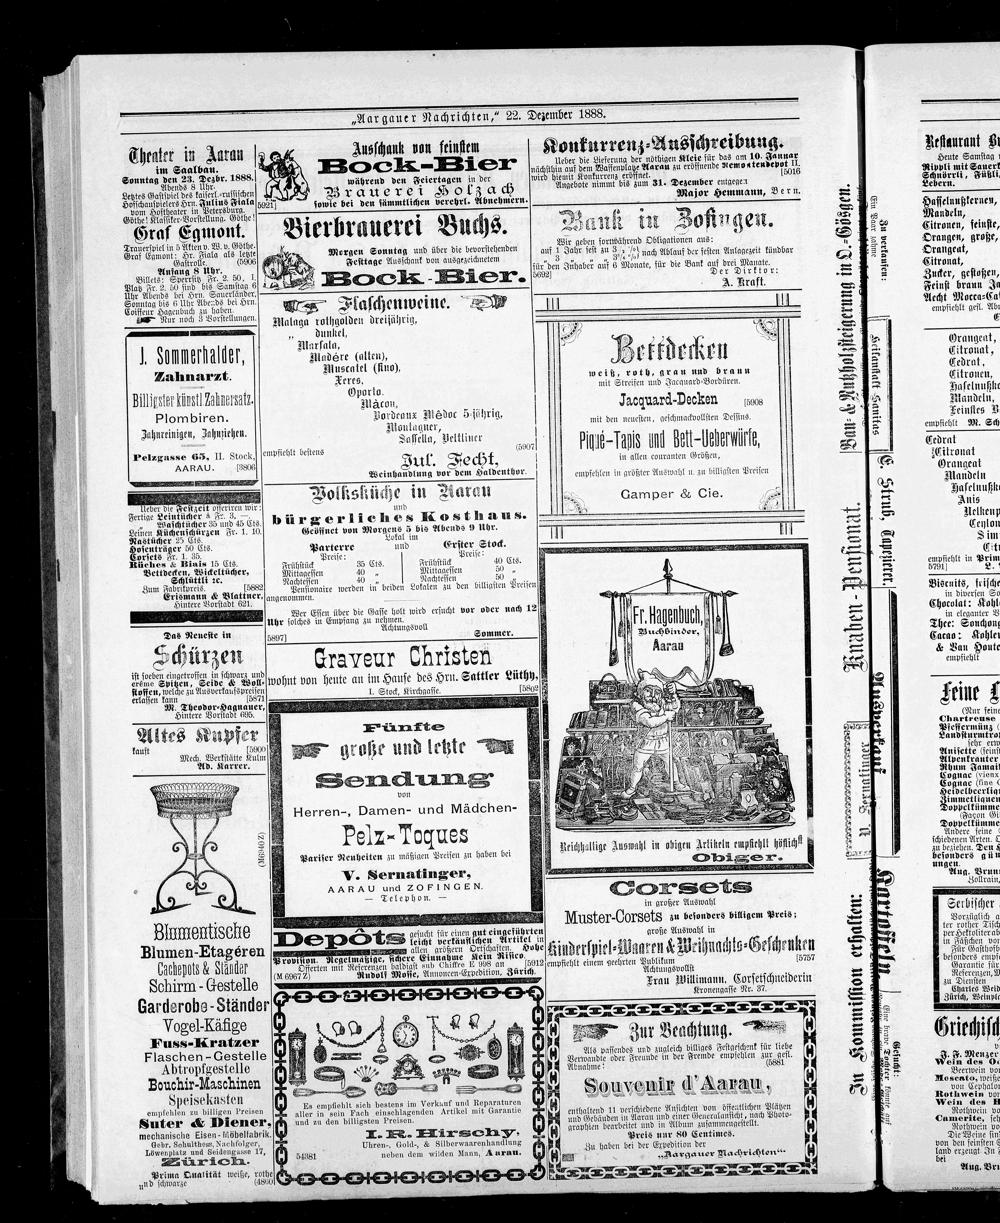 „Aargauer Nachrichten,“ 22. Dezember 1888.
Theater in Aarau
im Saalbau.
Sonntag den 23. Dezbr. 1888.
Abends 8 Uhr.
Letztes Gastspiel des kaiserl.-russischen
Hofschauspielers Hrn. Julius Fiala
vom Hoftheater in Petersburg.
Göthe! Klassiker-Vorstellung. Göthe!
Graf Egmont.
Trauerspiel in 5 Akten v. W. v. Göthe.
Graf Egmont: Hr. Fiala als letzte
Gastrolle. (5906
Anfang 8 Uhr.
Billets: Sperrsitz Fr. 2. 50, I.
Platz Fr. 2. 50 sind bis Samstag 6
Uhr Abends bei Hrn. Sauerländer,
Sonntag bis 6 Uhr Abends bei Hrn.
Coiffeur Hagenbuch zu haben.
Nur noch 3 Vorstellungen.
J. Sommerhalder,
Zahnarzt.
Billigster künstl Zahnersatz.
Plombiren.
Zahnreinigen, Zahnziehen.
Pelzgasse 65, II. Stock,
AARAU. [3806
Ueber die Festzeit offeriren wir:
Fertige Leintücher à Fr. 3. —.
„ Waschtücher 35 und 45 Cts.
Leinen Küchenschürzen Fr. 1. 10.
Nastücher 25 Cts.
Hosenträger 50 Cts.
Corsets Fr. 1. 35.
Rüches & Biais 15 Cts.
Bettdecken, Wickeltücher,
Schlüttli ꝛc.
Zum Fabrikpreis. [5882
Erismann & Plattner,
Hintere Vorstadt 621.
Das Neueste in
Schürzen
ist soeben eingetroffen in schwarz und
crème Spitzen, Seide & Woll-
stoffen, welche zu Ausverkaufspreisen
erlassen kann [5871
M. Theodor-Hagnauer,
Hintere Vorstadt 695.
Altes Kupfer
kauft [5900
Mech. Werkstätte Kulm
Ad. Karrer.
(M6940Z)
Blumentische
Blumen-Etagéren
Cachepots & Ständer
Schirm-Gestelle
Garderobe-Ständer
Vogel-Käfige
Fuss-Kratzer
Flaschen-Gestelle
Abtropfgestelle
Bouchir-Maschinen
Speisekasten
empfehlen zu billigen Preisen
Suter & Diener,
mechanische Eisen-Möbelfabrik.
Gebr. Schulthess, Nachfolger,
Löwenplatz und Seidengasse 17,
Zürich.
Prima Qualität weiße, rothe
und schwarze (4860)
Ausschank von feinstem
Bock-Bier
während den Feiertagen in der
Brauerei Holzach
sowie bei den sämmtlichen verehrl. Abnehmern.
5921]
Bierbrauerei Buchs.
Morgen Sonntag und über die bevorstehenden
Festtage Ausschank von ausgezeichnetem
Bock-Bier.
Flaschenweine.
Malaga rothgolden dreijährig,
„ dunkel,
Marsala,
Madère (alten),
Muscatel (fino),
Xeres,
Oporto,
Mâcon,
Bordeaux Médoc 5-jährig,
Montagner,
Sassella, Veltliner
empfiehlt bestens (5907
Jul. Fecht,
Weinhandlung vor dem Haldenthor.
Volksküche in Aarau
und
bürgerliches Kosthaus.
Geöffnet von Morgens 5 bis Abends 9 Uhr.
Lokal im
Parterre und Erster Stock.
Preise: Preise:
Frühstück 35 Cts. Frühstück 40 Cts.
Mittagessen 40 „ Mittagessen 50 „
Nachtessen 40 „ Nachtessen 50 „
Pensionaire werden in beiden Lokalen zu den billigsten Preisen
angenommen.
Wer Essen über die Gasse holt wird ersucht vor oder nach 12
Uhr solches in Empfang zu nehmen.
Achtungsvoll
5897] Sommer.
Graveur Christen
wohnt von heute an im Hause des Hrn. Sattler Lüthy,
I. Stock, Kirchgasse. [5892
Fünfte
große und letzte
Sendung
von
Herren-, Damen- und Mädchen-
Pelz-Toques
Pariser Neuheiten zu mäßigen Preisen zu haben bei
V. Sernatinger,
AARAU und ZOFINGEN.
— Telephon. —
Depôts gesucht für einen gut eingeführten
leicht verkäuflichen Artikel in
allen größeren Ortschaften. Hohe
Provision. Regelmäßige, sichere Einnahme Kein Risico.
Offerten mit Referenzen baldigst sub Chiffre E 998 an [5912
(M 6967 Z) Rudolf Mosse, Annoncen-Expedition, Zürich.
Es empfiehlt sich bestens im Verkauf und Reparaturen
aller in sein Fach einschlagenden Artikel mit Garantie
und zu den billigsten Preisen.
I. R. Hirschy,
Uhren-, Gold-, & Silberwaarenhandlung
54381 neben dem wilden Mann, Aarau.
Konkurrenz-Ausschreibung.
Ueber die Lieferung der nöthigen Kleie für das am 10. Januar
nächsthin auf dem Waffenplatze Aarau zu eröffnende Remontendepot II.
wird hiemit Konkurrenz eröffnet. [5016
Angebote nimmt bis zum 31. Dezember entgegen
Major Hemmann, Bern.
Bank in Zofingen.
Wir geben fortwährend Obligationen aus:
auf 1 Jahr fest zu
nach Ablauf der festen Anlagezeit kündbar
für den Inhaber auf 6 Monate, für die Bank auf drei Monate.
5692] Der Direktor:
A. Kraft.
Bettdecken
weiß, roth, grau und braun
mit Streifen und Jacquard-Bordüren.
Jacquard-Decken [5908
mit den neuesten, geschmackvollsten Dessins.
Piqué-Tapis und Bett-Ueberwürfe,
in allen couranten Größen,
empfehlen in größter Auswahl u. zu billigsten Preisen
Gamper & Cie.
Fr. Hagenbuch,
Buchbinder,
Aarau
Reichhaltige Auswahl in obigen Artikeln empfiehlt höflichst
Obiger.
Corsets
in großer Auswahl
Muster-Corsets zu besonders billigem Preis;
große Auswahl in
Kinderspiel-Waaren & Weihnachts-Geschenken
empfiehlt einem geehrten Publikum [5757
Achtungsvollst
Frau Willimann, Corsetschneiderin
Kronengasse Nr. 37.
Zur Beachtung.
Als passendes und zugleich billiges Festgeschenk für liebe
Verwandte oder Freunde in der Fremde empfehlen zur gefl.
Abnahme: (5881
Souvenir d'Aarau,
enthaltend 11 verschiedene Ansichten von öffentlichen Plätzen
und Gebäuden in Aarau und einer Generalansicht, nach Photo-
graphien bearbeitet und in Album zusammengestellt.
Preis nur 80 Centimes.
Zu haben bei der Expedition der
„Aargauer Nachrichten“
Bau- & Nutzholzsteigerung in O.-Gösgen.
Zu verkaufen:
Ein Paar zahme
Heilanstalt Sanitas
Knaben-Pensionat.
C. Strub, Tapezierer.
Ausverkauf
V. Sernatinger
In Kommission erhalten:
Kartoffeln
Gesucht:
Eine brave Tochter könnte auf
Restaurant
Heute Samstag
Rippli mit Sauerk
Schnörrli, Füßli,
Lebern.
Haselnußkernen,
Mandeln,
Citronen, feinste,
Orangen, große,
Orangeat,
Citronat,
Zucker, gestoßen,
Feinst braun
Aecht Mocca-
empfiehlt gefl.
Orangeat,
Citronat,
Cedrat,
Citronen,
Haselnußk
Mandeln,
Feinstes
empfiehlt M. Sch
Cedrat
Citronat
Orangeat
Mandeln
Haselnuß
Anis
Nelken
Ceylon
Zim
empfiehlt in Prim
5791]
Biscuits, frische
in diversen
Chocolat: Kohl
in eleganter
Thee: Souchong
Cacao: Kohler
& Van Houte
empfiehlt
Feine
(Nur feine
Chartreuse
Pfeffermünz
Landsturmtro
sehr erw
Anisette (feinst
Alpenkräuter
Rhum Jamai
Cognac (vieux
Cognac (fine
Heidelbeerliq
Zimmetliqueu
Doppelkümme
(Façon Gi
Doppelkümme
Andere feine
schiedenen Arten.
zu beziehen. Den
besonders gün
ungen.
Aug. Brun
Zollrain,
Serbischer
Vorzüglich
ter rother Tisch
per Hektoliter
in Fäßchen von
Für Gasthöfe
besonders empf
Garantie für
Referenzen,
zu Diensten
Charles Weid
Zürich, Weinpl
Griechisch
J. F. Menzer
Wein des
Beerwein von
Moscato, weiße
von Cephalon
Rothwein von
Wein des
Rothwein
Camerite, sehr
Rothwein von
Die Weine sind
von den feinsten
land erzeugt In
bei
Aug. Bru